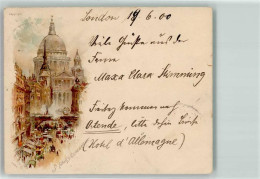 London 19/6.00
Viele Grüsse aus der
Ferne
Maxx Clara Simmering
Freitag kommen nach
Ostende, bitte dahin Briefe
(Hotel d'Allemagne)